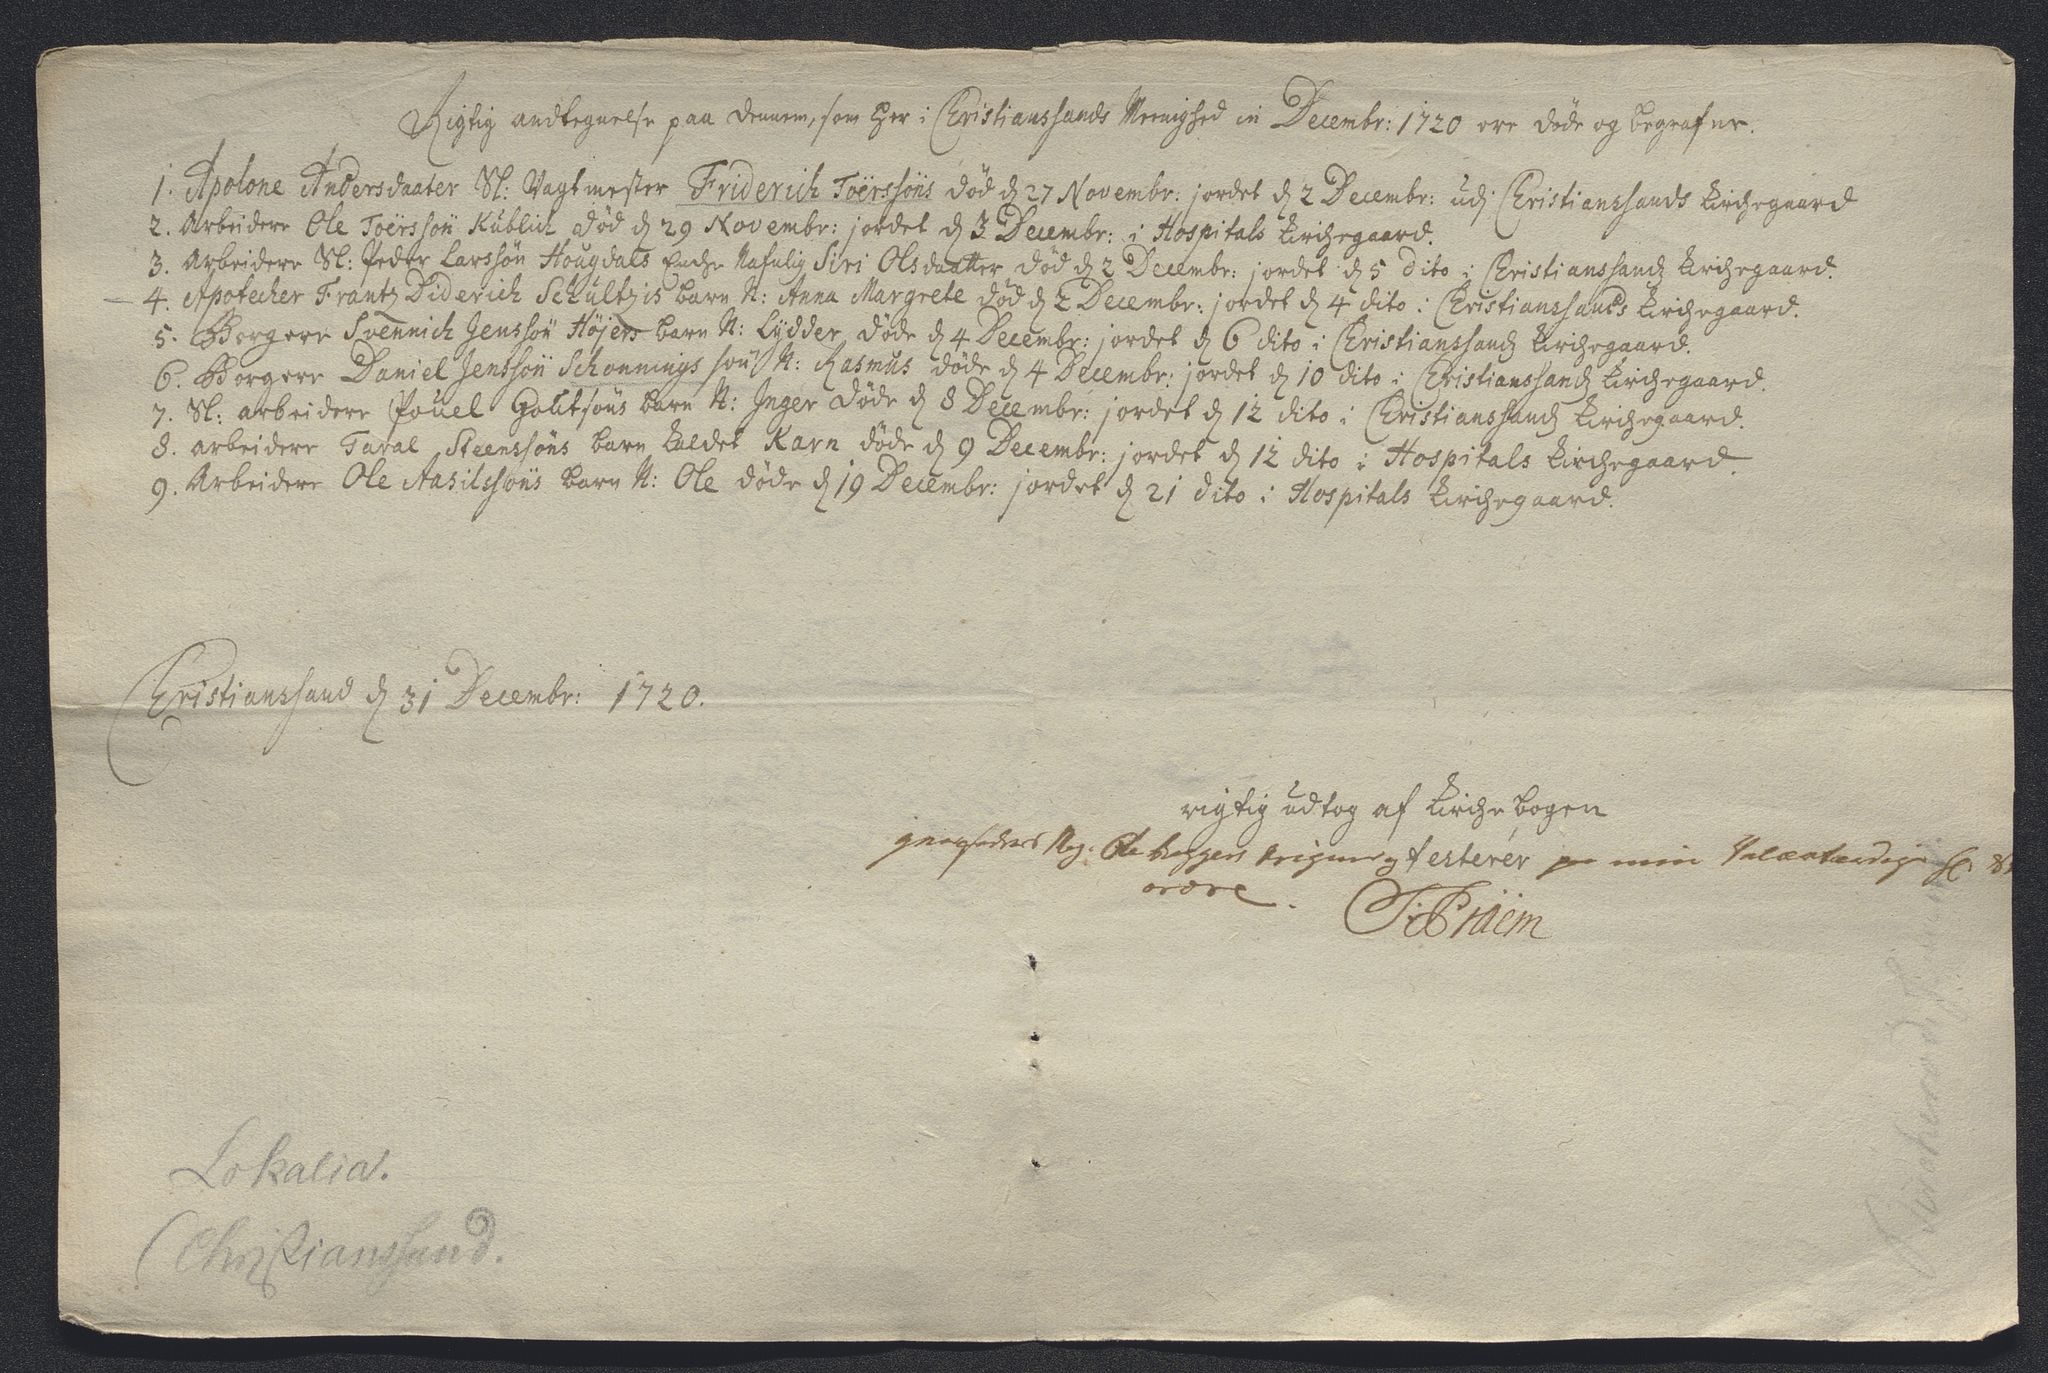 Rigtig andtegnelse paa dennem, som her i Christianssands Meenighed in Decembr: 1720 ere døde og begrafne.
1. Apolone Andersdaater Sl: Vagtmester Friderich Toërssöns død d 27 Novembr: jordet d 2 Decembr: udj Christianssands Kirchegaard
2. Arbeidere Ole Toërssön Kublich død d 29 Novembr: jordet d 3 Decembr: i Hospitals Kirchegaard.
3. Arbeidere Sl: Peder Larssön Hougdals Enche Nafnlig Siri Olsdaatter død d 2 Decembr: jordet d 5 dito i Christianssands Kirchegaard.
4. Apotecher Frantz Diderich Schultzis barn N: Anna Margrete død d 2 Decembr: jordet d 4 dito i Christianssands Kirchegaard.
5. Borgere Svennich Jenssön Höjers barn N: Lydder døde d 4 Decembr: jordet d 6 dito i Christianssands Kirchegaard.
6. Borgere Daniel Jenssön Schonnings sön N: Rasmus døde d 4 Decembr: jordet d 10 dito i Christianssands Kirchegaard.
7. Sl: arbeidere Pouel Goutsöns barn N: Inger døde d 8 Decembr: jordet d 12 dito i Christianssands Kirchegaard.
8. arbeidere Taral Steenssöns barn kaldet Karn døde d 9 Decembr: jordet d 12 dito i Hospitals Kirchegaard.
9. Arbeidere Ole Aasilssöns barn N: Ole døde d 19 Decembr: jordet d 21 dito i Hospitals Kirchegaard.
Christianssand d 31 Decembr: 1720.
rigtig udtog af Kirchebogen
testerer min
ordre.
Lokalia.
Christianssand.